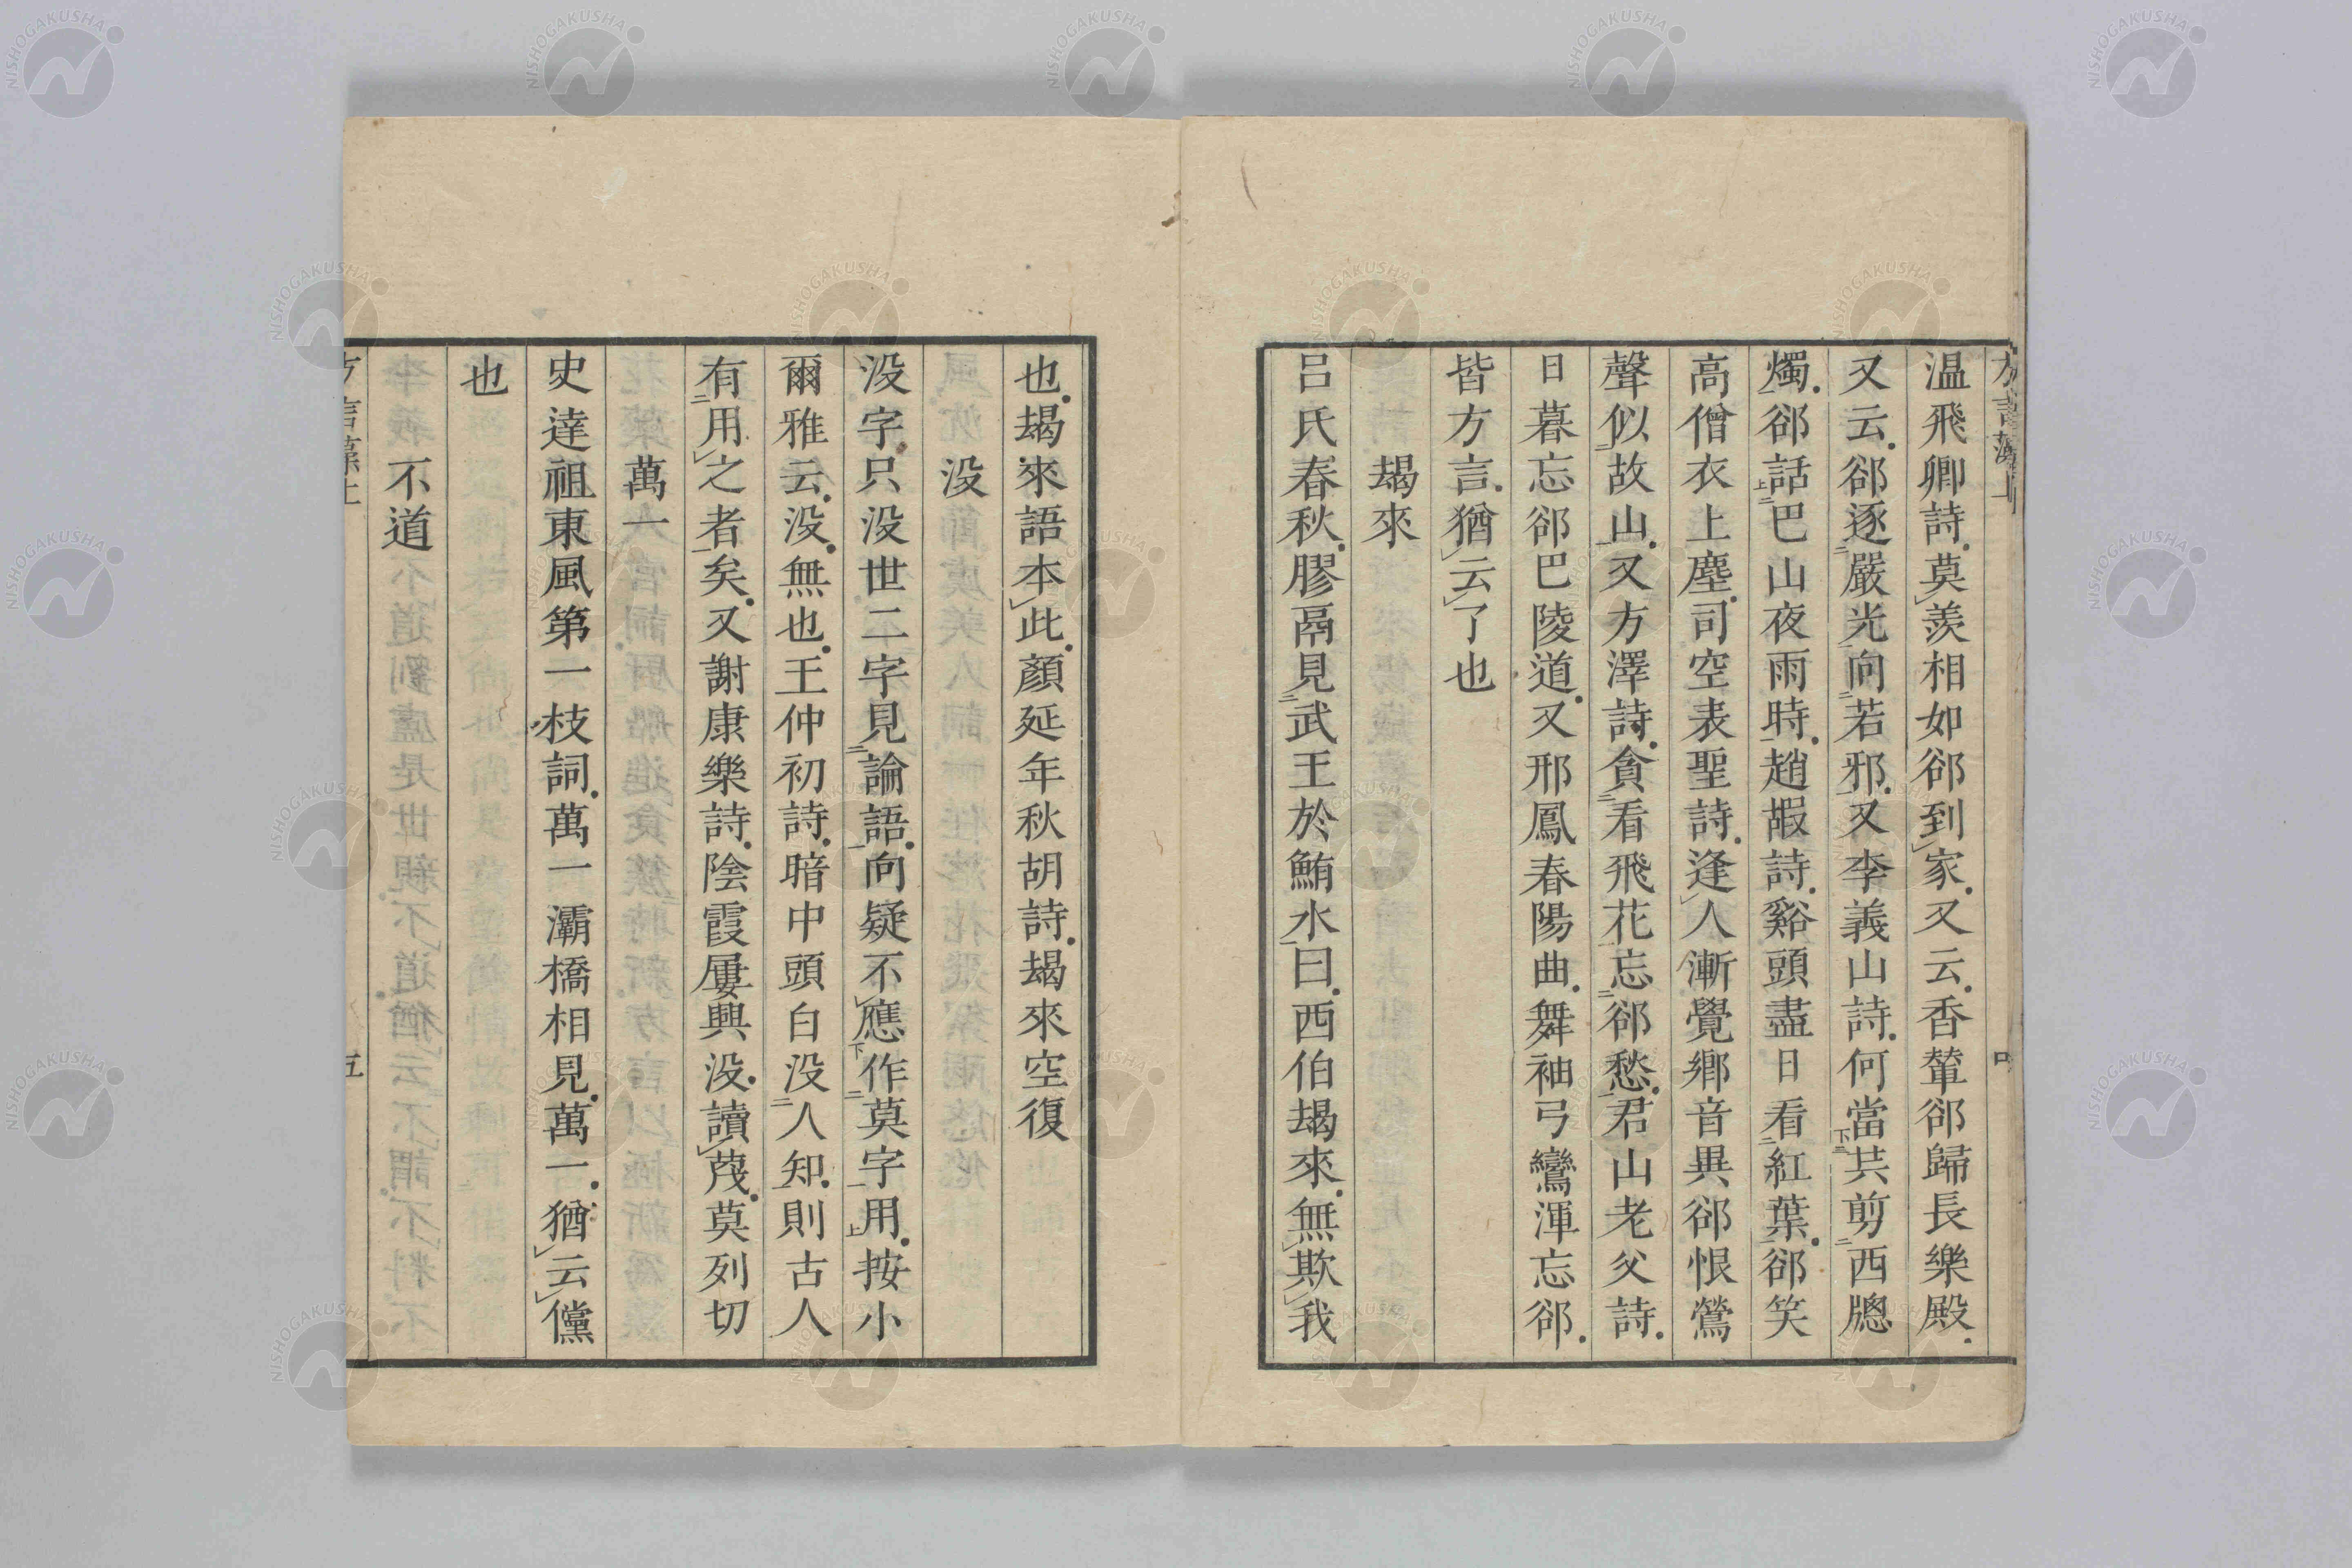 方言藻上
温飛卿詩莫羨相如郤到家又云香輦郤歸長樂殿
又云郤逐嚴光向若邪又李義山詩何當共剪西牕
燭郤話巴山夜雨時趙嘏詩谿頭盡日看紅葉郤笑
高僧衣上塵司空表聖詩逢人漸覺鄉音異郤恨鶯
聲似故山又方澤詩貪看飛花忘郤愁君山老父詩
日暮忘郤巴陵道又邢鳳春陽曲舞袖弓鸞渾忘郤
皆方言猶云了也
朅來
呂氏春秋膠鬲見武王於鮪水曰西伯朅來無欺我
也朅來語本此顏延年秋胡詩朅來空復
没
没字只没世二字見論語向疑不應作莫字用按小
爾雅云没無也王仲初詩暗中頭白没人知則古人
有用之者矣又謝康樂詩陰霞屢興没讀茂莫列切
萬一
史達祖東風第一枝詞萬一灞橋相見萬一猶云儻
也
不道
方言藻上
五
NISHOGAKUSHA